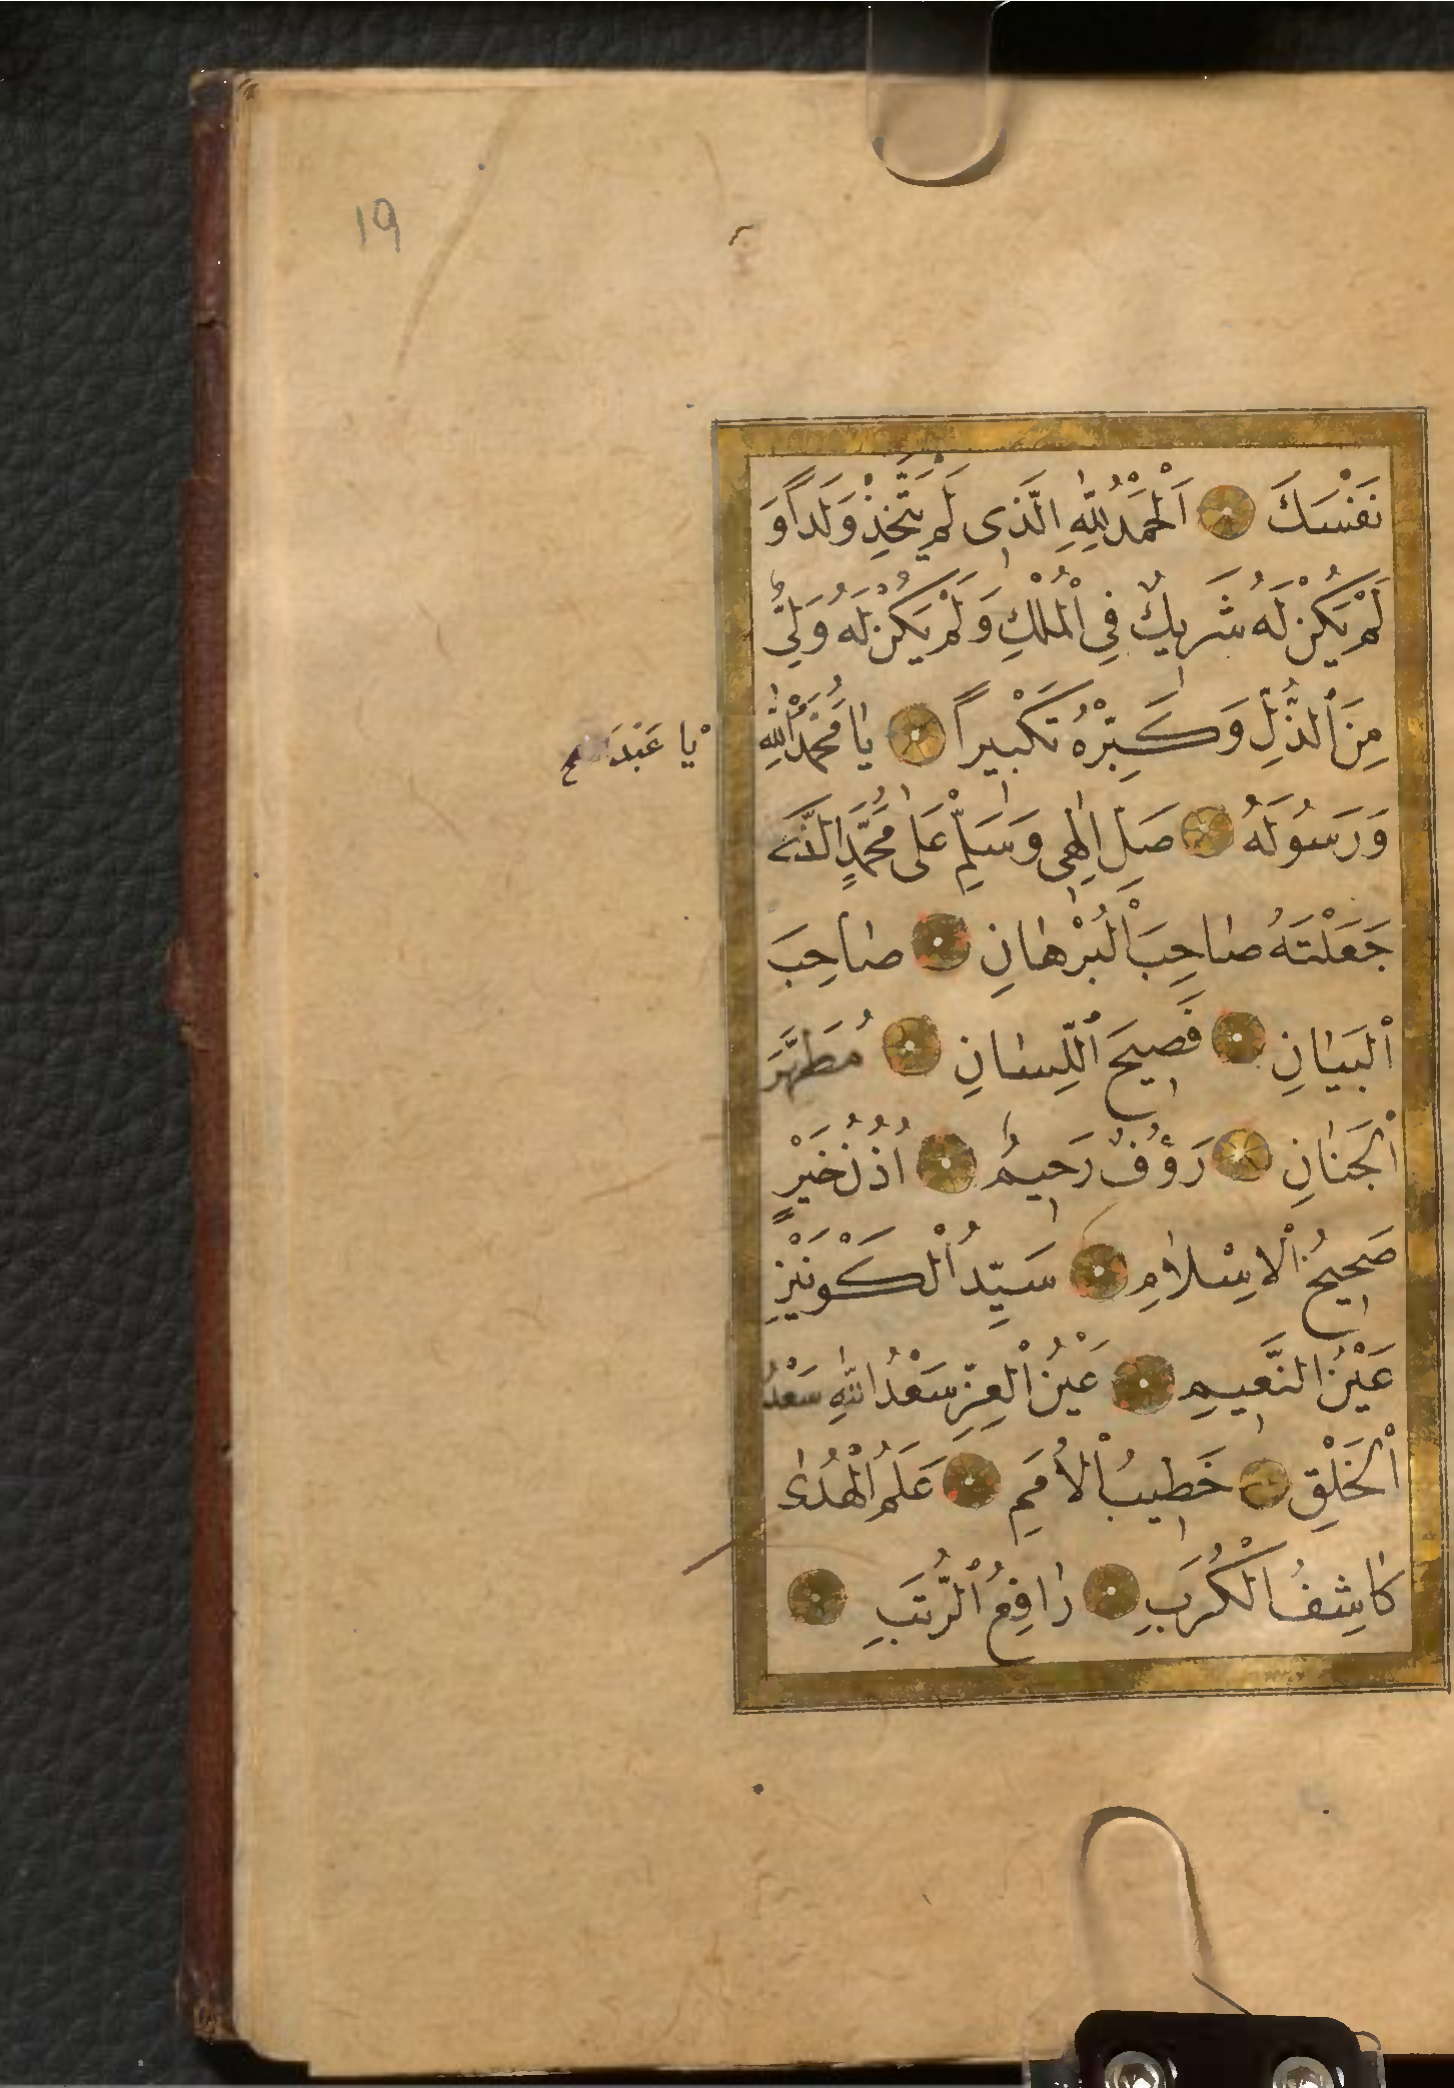 19
نَفْسَكَ اَلْحَمْدُ لِلّٰهِ الَّذِی لَمْ يَتَّخِذْ وَلَداً وَ
لَمْ يَكُنْ لَهُ شَرِيكٌ فِي الْمُلْكِ وَلَمْ يَكُنْ لَهُ وَلِیٌّ
مِنَ الذُّلِّ وَكَبِّرْهُ تَكْبِيراً يَا مُحَمَّدُ اللّٰهِ
يا عَبْدَ
وَرَسُولَهُ صَلِّ اِلٰهِی وَسَلِّمْ عَلٰى مُحَمَّدٍ الَّذِی
جَعَلْتَهُ صَاحِبَ الْبُرْهَانِ صَاحِبَ
الْبَيَانِ فَصِيحَ اللِّسَانِ مُطَهَّرَ
الْجَنَانِ رَؤُفٌ رَحِيمٌ اُذُنُ خَيْرٍ
صَحِيحُ الْاِسْلَامِ سَيِّدُ الْكَوْنَيْنِ
عَيْنُ النَّعِيمِ عَيْنُ الْعِزِّ سَعْدُ اللّٰهِ سَعْدُ
الْخَلْقِ خَطِيبُ الْاُمَمِ عَلَمُ الْهُدٰى
كَاشِفُ الْكُرَبِ رَافِعُ الرُّتَبِ